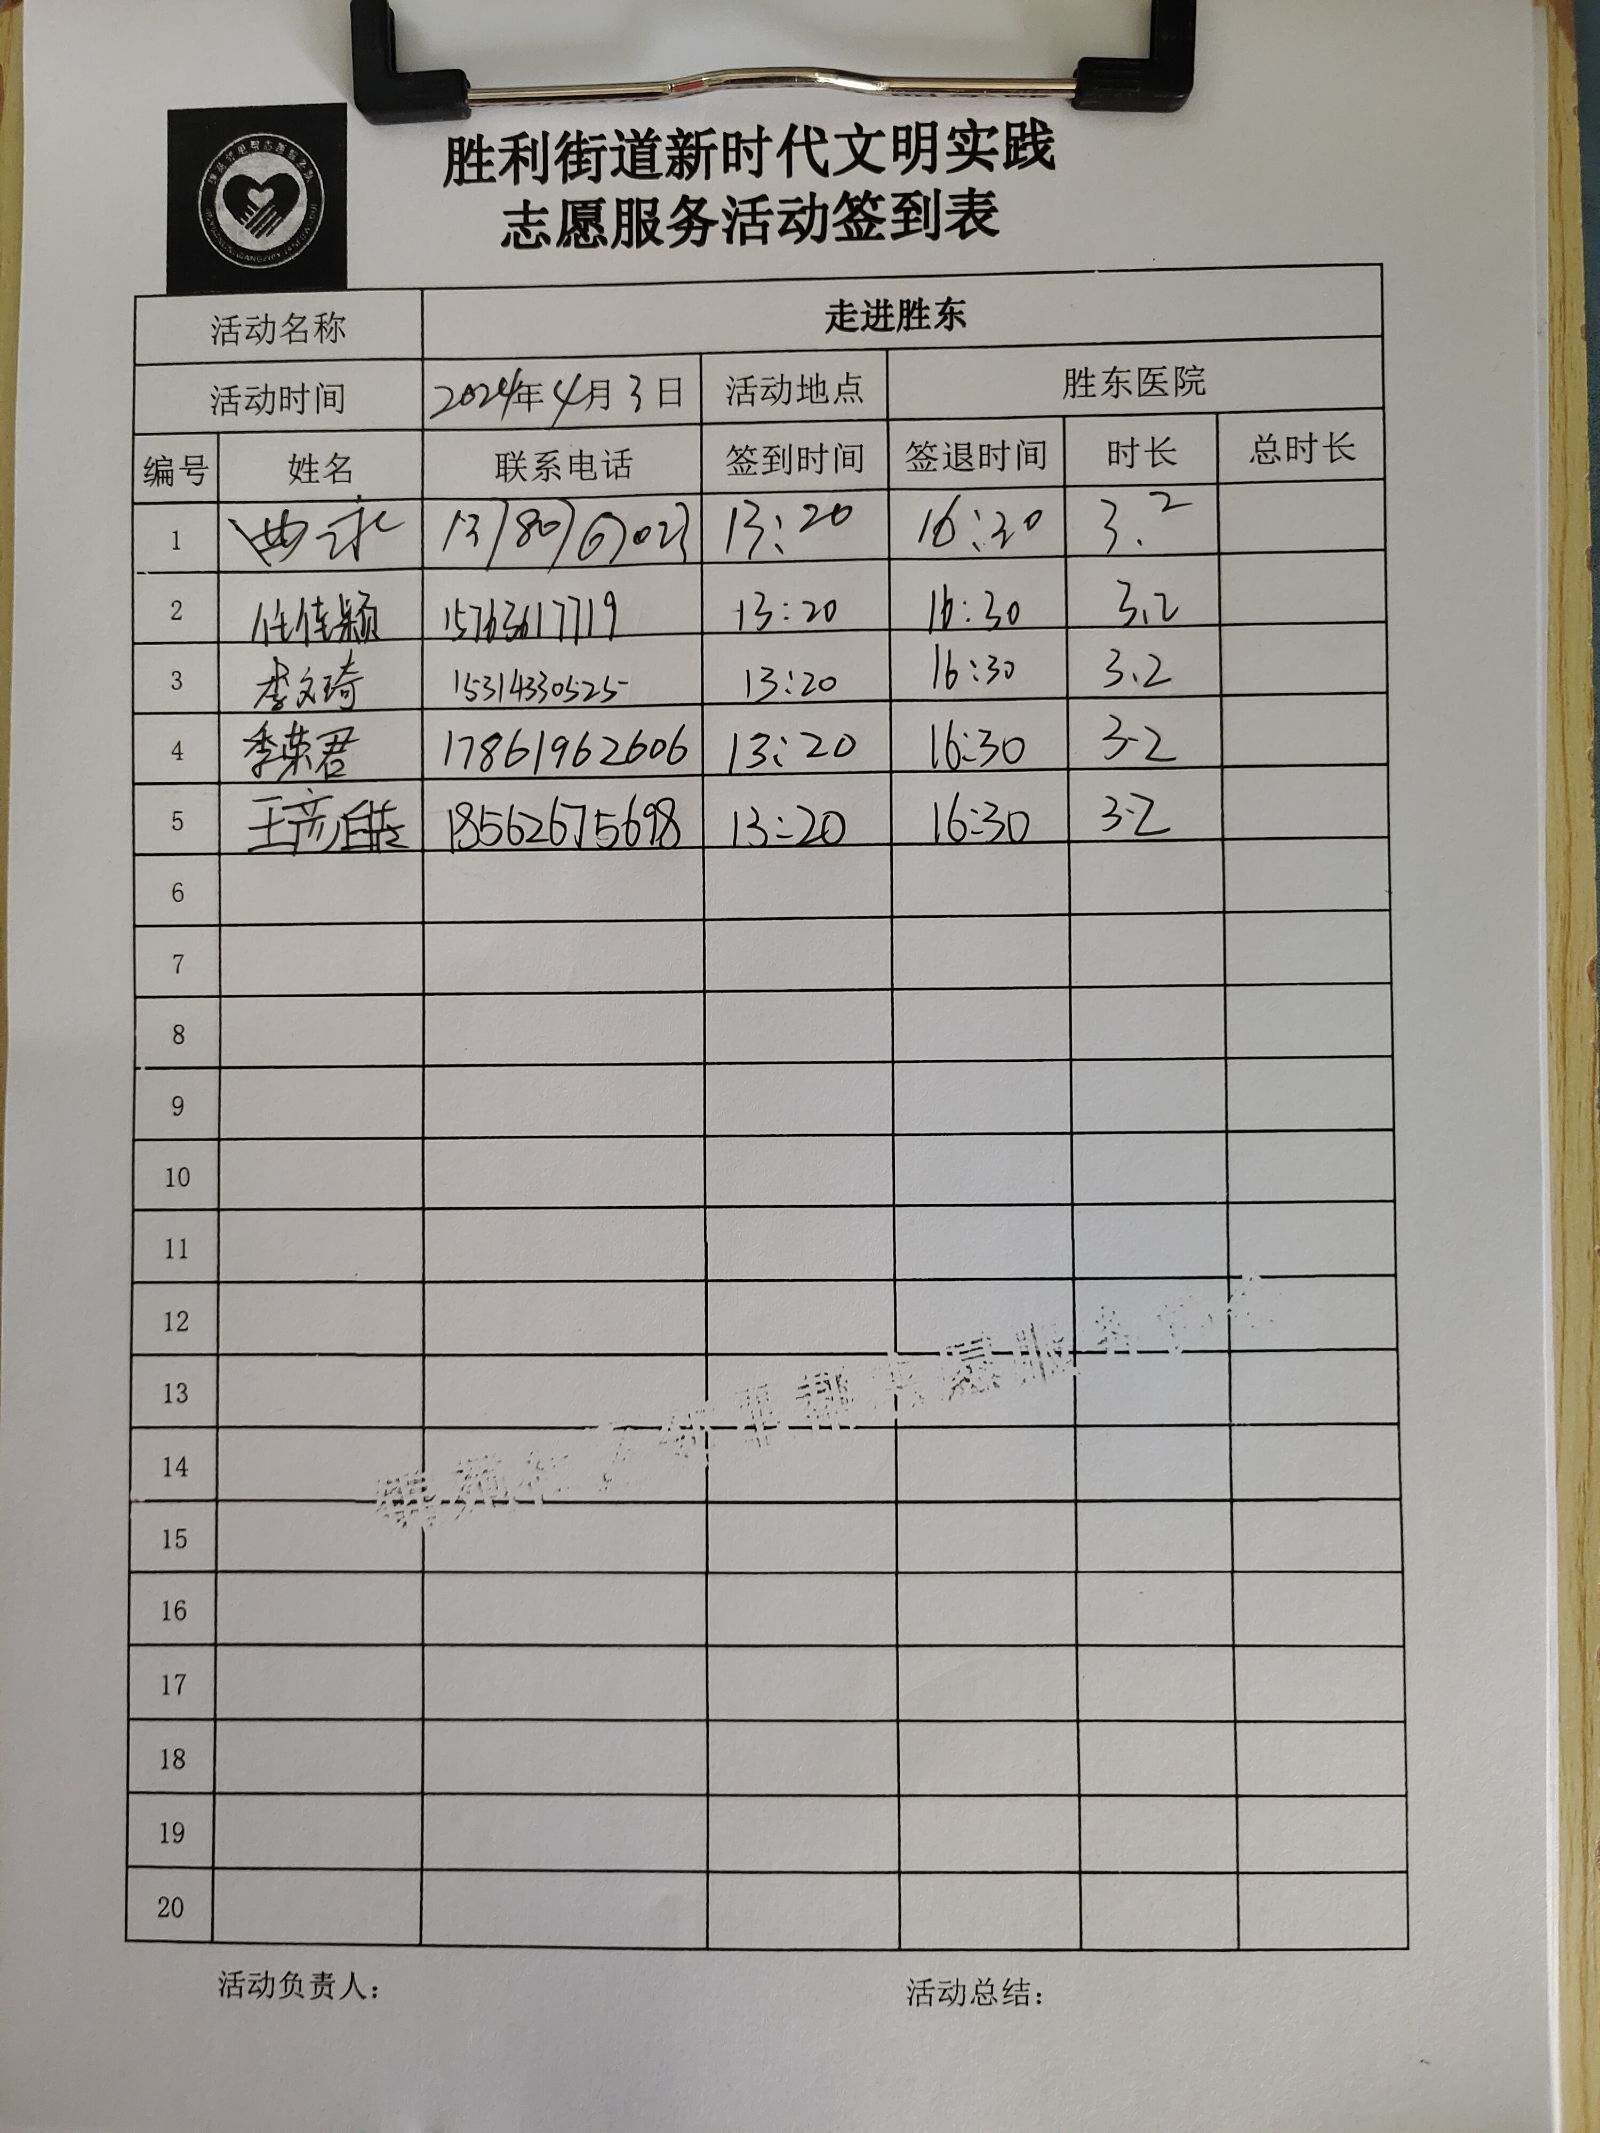 胜利街道新时代文明实践
志愿服务活动签到表
活动名称 走进胜东
活动时间 2024年4月3日 活动地点 胜东医院
编号 姓名 联系电话 签到时间 签退时间 时长 总时长
1 13:20 16:30 3.2
2 任佳颖 15763617719 13:20 16:30 3.2
3 李文琦 15314330525 13:20 16:30 3.2
4 季荣君 17861962606 13:20 16:30 3.2
5 王彦 18562675698 13:20 16:30 3.2
6
7
8
9
10
11
12
13
14
15
16
17
18
19
20
活动负责人： 活动总结：